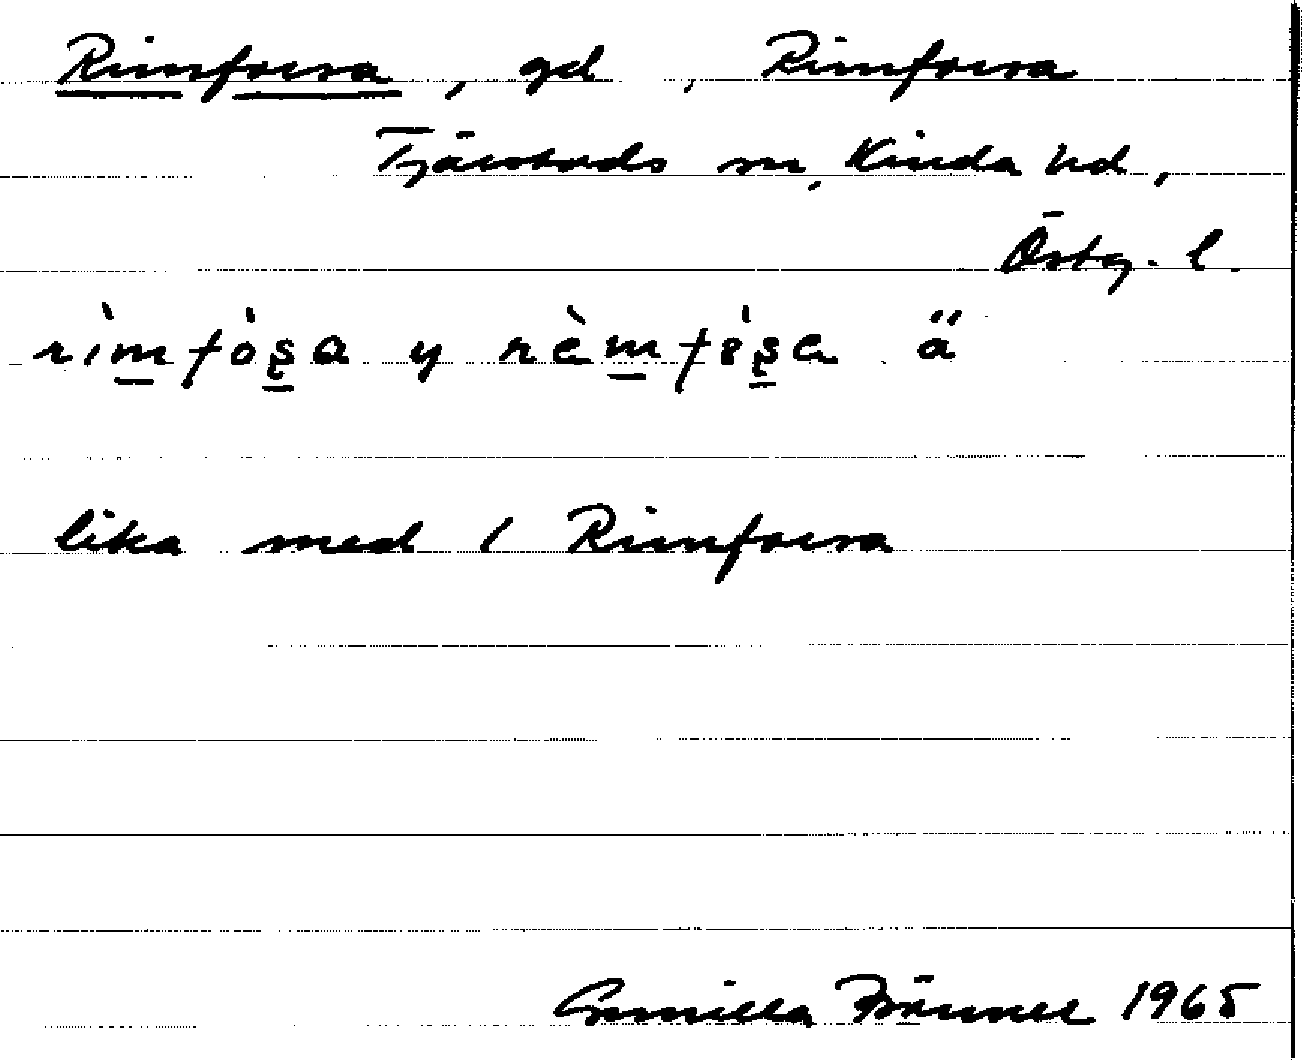 Rimforsa, gd, Rimforsa
Tjärstads sn, Kinda hd,
Östg. l.
rìmfòʂa y rèmfòʂa ä
lika med 1 Rimforsa
Gunilla 1965